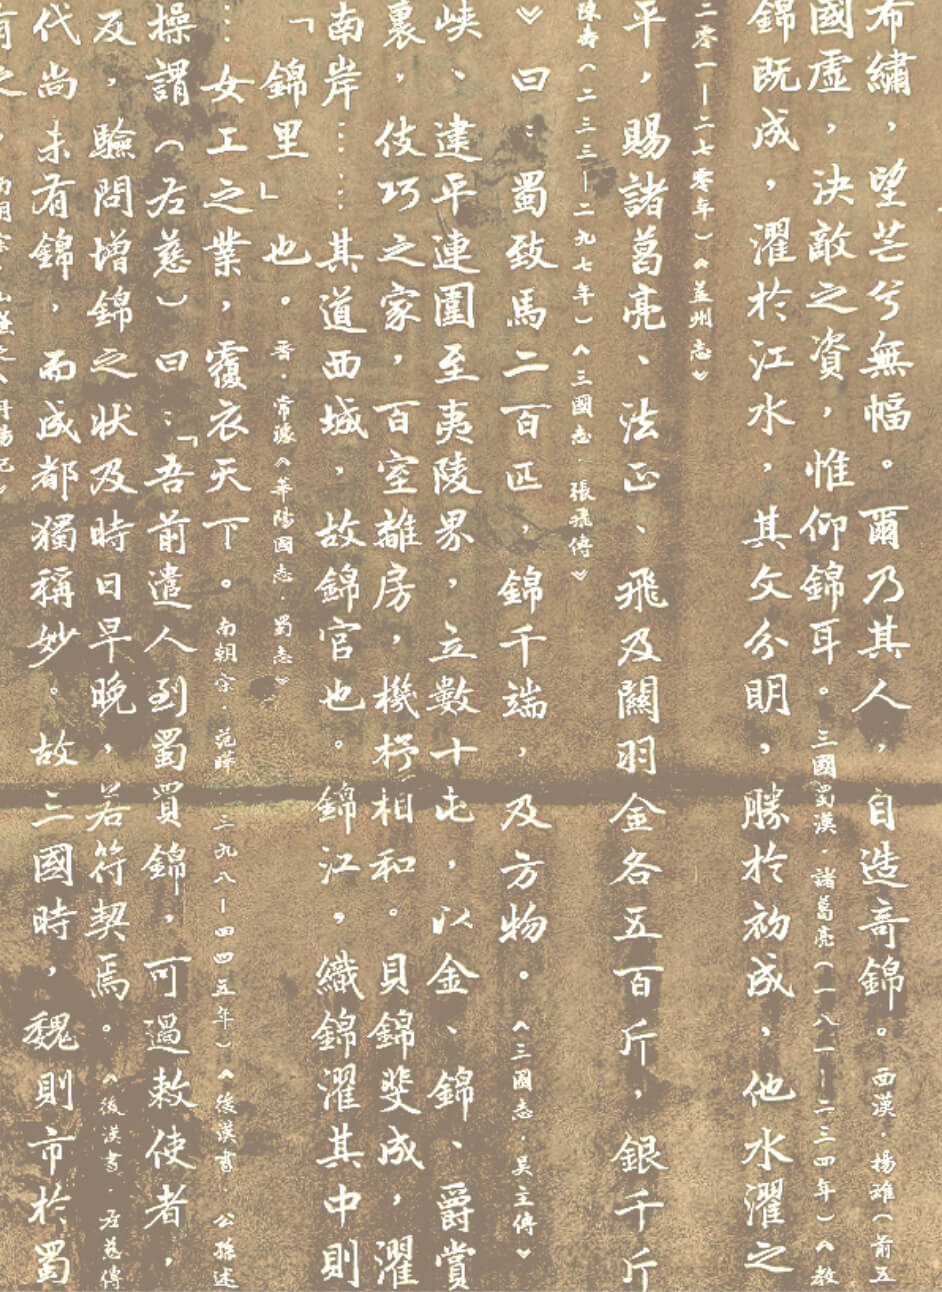 布繡，望芒兮無幅。爾乃其人，自造奇錦。西漢·楊雄（前五
國虛，決敵之資，惟仰錦耳。三國蜀漢·諸葛亮（一八一—二三四年）《教
錦既成，濯於江水，其文分明，勝於初成，他水濯之
二零一—二七零年）《益州志》
平，賜諸葛亮、法正、飛及關羽金各五百斤，銀千斤
陳壽（二三三—二九七年）《三國志·張飛傳》
》曰：蜀致馬二百匹，錦千端，及方物。《三國志·吳主傳》
峽、建平連圍至夷陵界，立數十屯，以金、錦、爵賞
裏，伎巧之家，百室離房，機杼相和。貝錦斐成，濯
南岸……其道西城，故錦官也。錦江，織錦濯其中則
「錦里」也。晉·常璩《華陽國志·蜀志》
…女工之業，覆衣天下。南朝宋·范曄（三九八—四四五年）《後漢書·公孫述
操謂（左慈）曰：「吾前遣人到蜀買錦，可過敕使者，
反，驗問增錦之狀及時日早晚，若符契焉。《後漢書·左慈傳
代尚未有錦，而成都獨稱妙。故三國時，魏則市於蜀